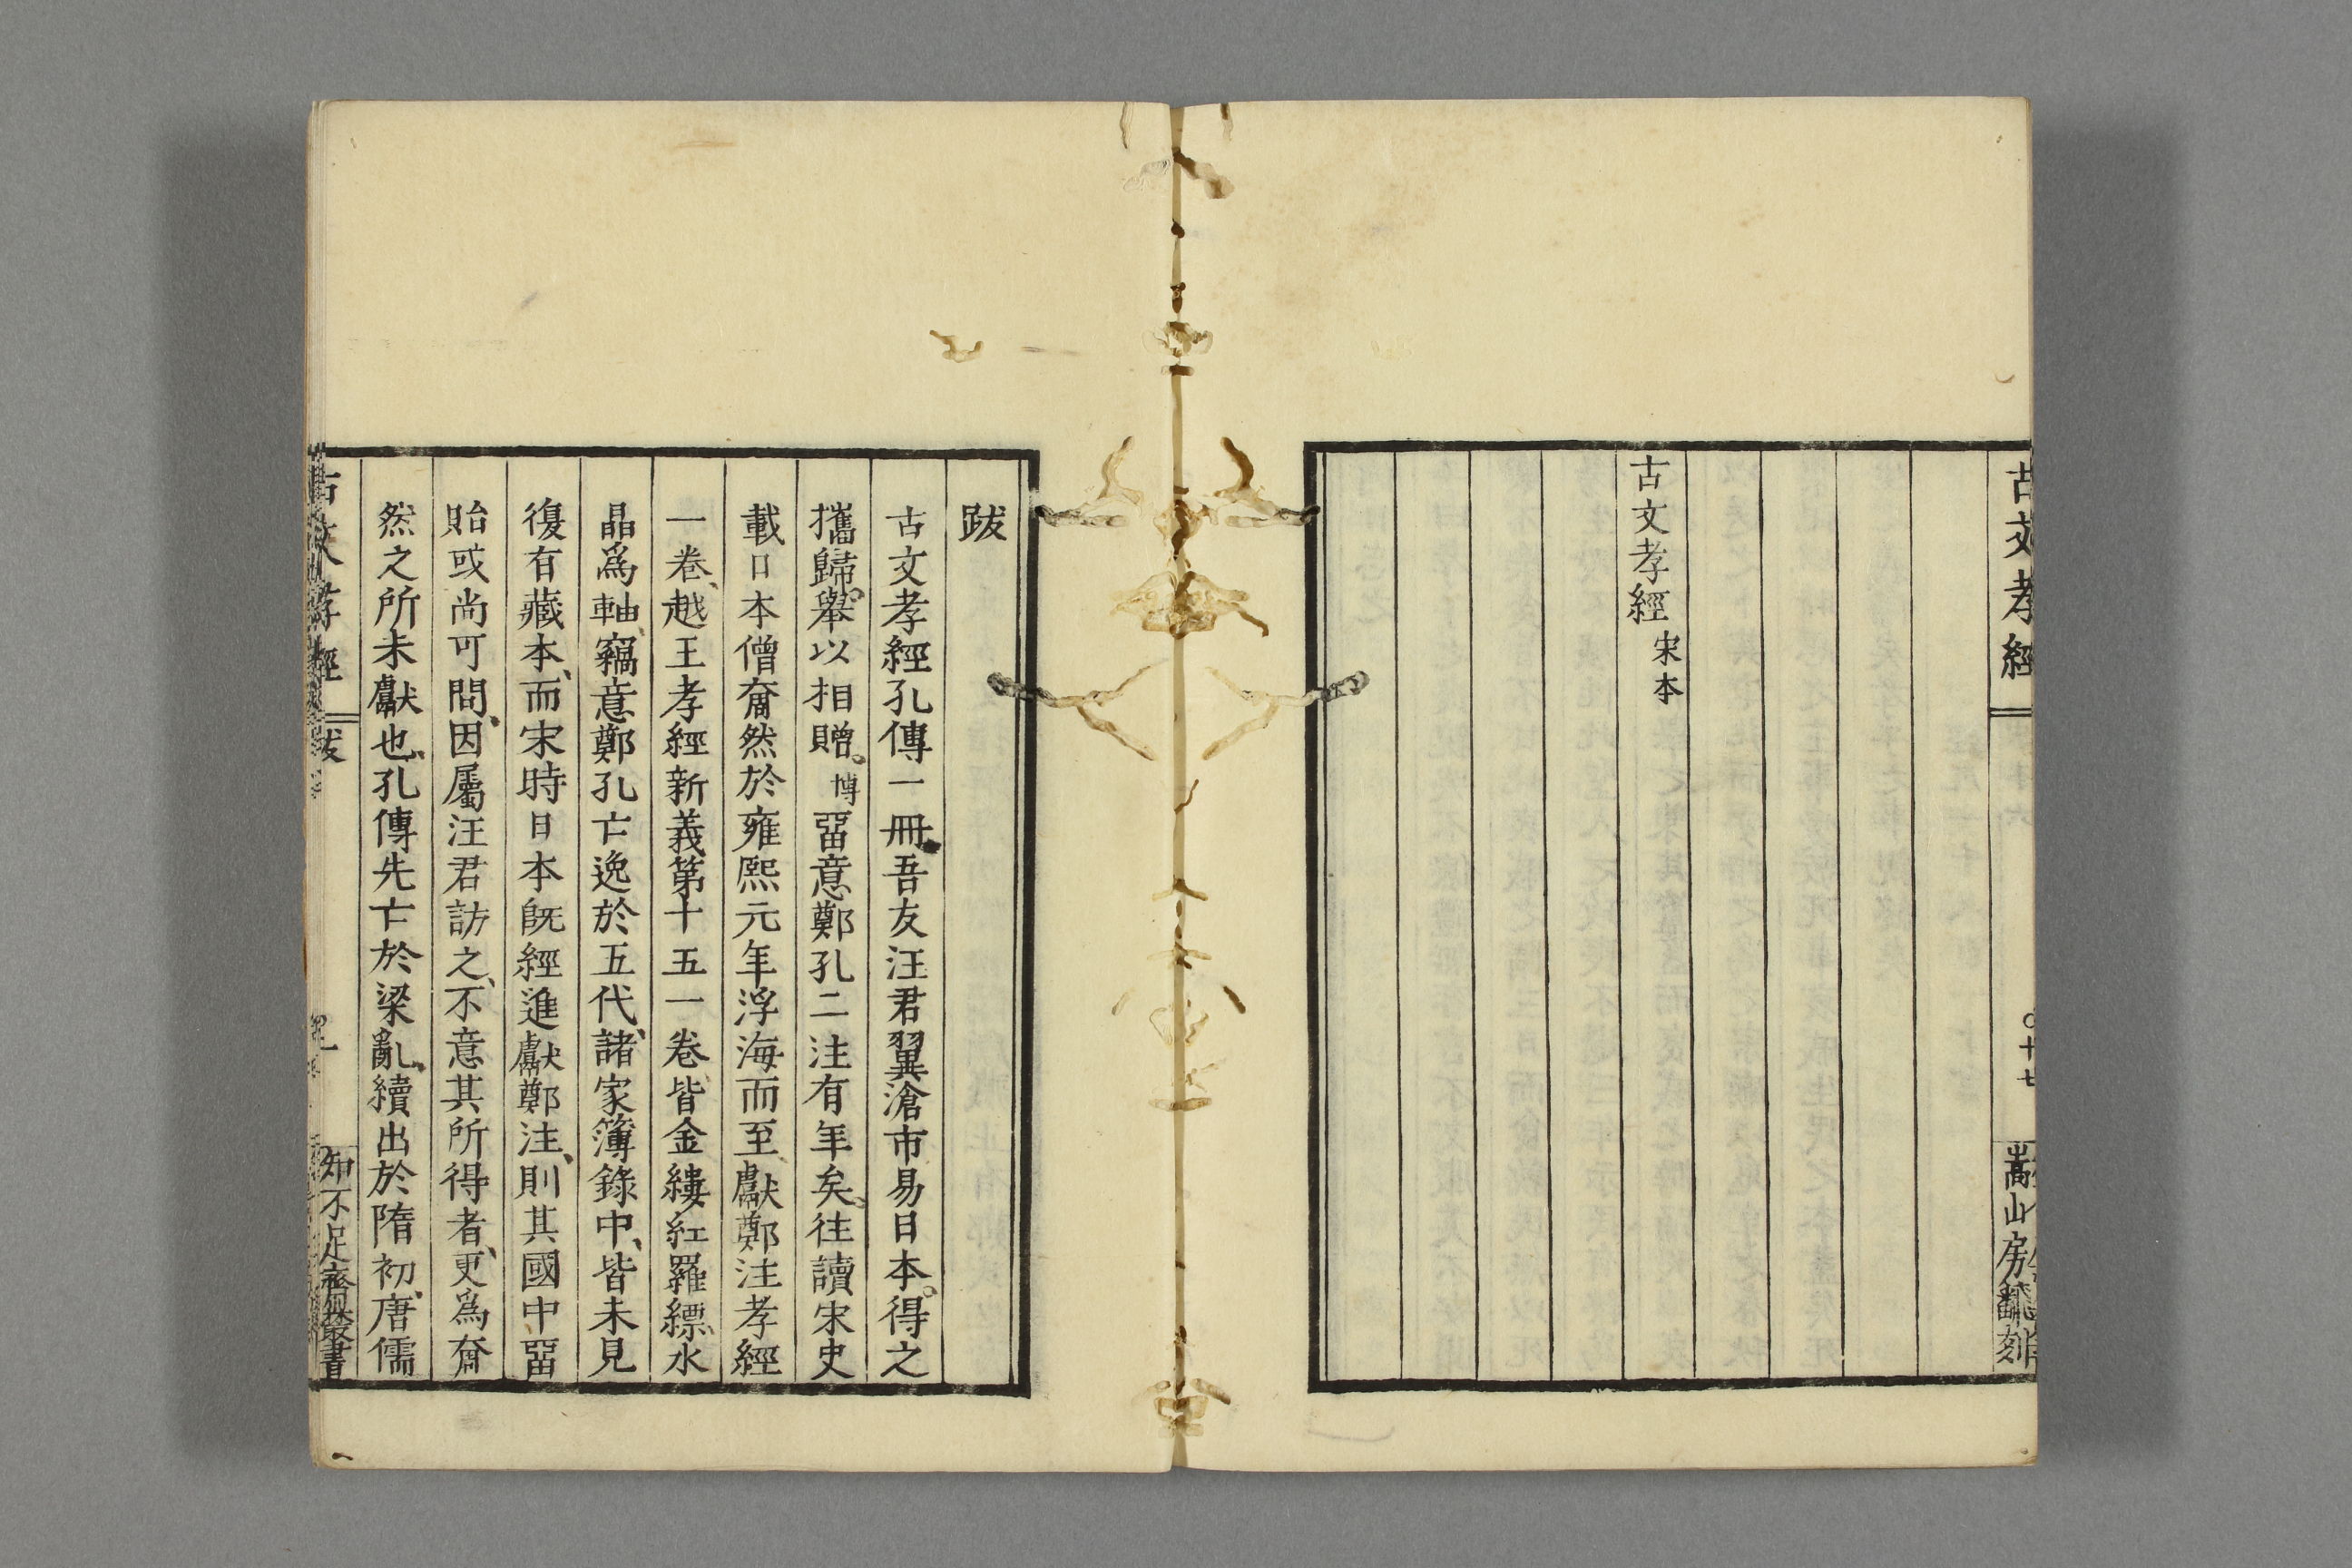 古文孝經
十七
嵩山房翻刻
古文孝經 宋本
跋
古文孝經孔傳一冊吾友汪君翼滄市易日本。得之
攜歸、舉以相贈。博畱意鄭孔二注有年矣。往讀宋史
載日本僧奝然於雍熙元年浮海而至、獻鄭注孝經
一卷、越王孝經新義第十五一卷皆金縷紅羅縹、水
晶爲軸、竊意鄭孔亡逸於五代、諸家簿錄中、皆未見
復有藏本、而宋時日本旣經進獻鄭注、則其國中畱
貽或尚可問、因屬汪君訪之、不意其所得者、更爲奝
然之所未獻也、孔傳先亡於梁亂、續出於隋初、唐儒
古文孝經
跋
知不足齋叢書